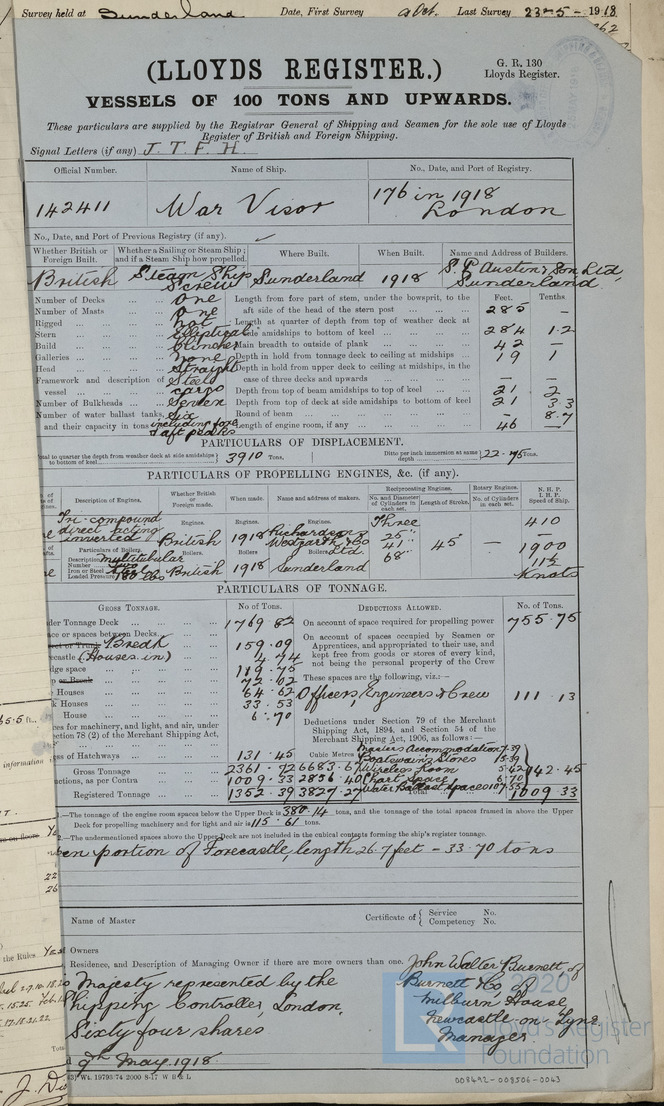 Survey held at Sunderland Date, First Survey Oct. Last Survey 23-5-1918
(LLOYDS REGISTER.)
G. R. 130
Lloyds Register.
VESSELS OF 100 TONS AND UPWARDS.
These particulars are supplied by the Registrar General of Shipping and Seamen for the sole use of Lloyds
Register of British and Foreign Shipping.
Signal Letters (if any) J. T. F. H.
Official Number. Name of Ship. No., Date, and Port of Registry.
142411 War Visor 176 in 1918
London
No., Date, and Port of Previous Registry (if any).
Whether British or Foreign Built. Whether a Sailing or Steam Ship; and if a Steam Ship how propelled. Where Built. When Built. Name and Address of Builders.
British Steam Ship Screw Sunderland 1918 S. P. Austin & Son Ltd, Sunderland
Feet. Tenths
Number of Decks One Length from fore part of stem, under the bowsprit, to the
Number of Masts One aft side of the head of the stern post 285 -
Rigged not Length at quarter of depth from top of weather deck at
Stern Elliptical side amidships to bottom of keel 284 1.2
Build Clincher Main breadth to outside of plank 42 -
Galleries None Depth in hold from tonnage deck to ceiling at midships 19 1
Head Straight Depth in hold from upper deck to ceiling at midships, in the
Framework and description of Steel case of three decks and upwards - -
vessel cargo Depth from top of beam amidships to top of keel 21 2
Number of Bulkheads Seven Depth from top of deck at side amidships to bottom of keel 21 3.3
Number of water ballast tanks, Six Round of beam - 8.7
and their capacity in tons including fore & aft peaks Length of engine room, if any 46 -
PARTICULARS OF DISPLACEMENT.
to quarter the depth from weather deck at side amidships to bottom of keel 3910 Tons, Ditto per inch immersion at same depth 22.75 Tons.
PARTICULARS OF PROPELLING ENGINES, &c. (if any).
Description of Engines. Whether British or Foreign made. When made. Name and address of makers. Reciprocating Engines. No. and Diameter of Cylinders in each set. Length of Stroke. Rotary Engines. No. of Cylinders in each set. N. H. P. I. H. P. Speed of Ship.
Tri-compound direct acting inverted Engines. British Engines. 1918 Engines. Richardson Westgarth & Co Ltd Three 25" 41" 68" 45" - 410
Particulars of Boilers. Boilers. Boilers Boilers 1900
Description multitubular
Number Two
Iron or Steel Steel
Loaded Pressure 180 lbs British 1918 Sunderland 11½ Knots
PARTICULARS OF TONNAGE.
GROSS TONNAGE. No of Tons. DEDUCTIONS ALLOWED. No. of Tons.
Under Tonnage Deck 1769 82 On account of space required for propelling power 755.75
Space or spaces between Decks On account of spaces occupied by Seamen or
Bredk 159.09 Apprentices, and appropriated to their use, and
(Houses in) 4.74 kept free from goods or stores of every kind,
space 119.75 not being the personal property of the Crew
or Break 72.02 These spaces are the following, viz.:—
Houses 64.62 Officers, Engineers & Crew 111 13
Houses 33.53
House 6.70 Deductions under Section 79 of the Merchant
for machinery, and light, and air, under Shipping Act, 1894, and Section 54 of the
section 78 (2) of the Merchant Shipping Act, Merchant Shipping Act, 1906, as follows:—
of Hatchways 131.45 Cubic Metres Masters Accommodation 7.39
Boatswains Stores 15.39
Gross Tonnage 2361.72 6683.67 Wireless Room 5.42 142.45
Deductions, as per Contra 1009.33 2856.40 Chart Space 6.70
Registered Tonnage 1352.39 3827.27 Water Ballast spaces 107.55 Total 1009.33
1.—The tonnage of the engine room spaces below the Upper Deck is 380.14 tons, and the tonnage of the total spaces framed in above the Upper
Deck for propelling machinery and for light and air is 115.61 tons.
2.—The undermentioned spaces above the Upper Deck are not included in the cubical contents forming the ship's register tonnage.
portion of Forecastle, length 26.7 feet - 33.70 tons
Name of Master Certificate of { Service No. Competency No.
Owners
Residence, and Description of Managing Owner if there are more owners than one.
Majesty represented by the
Shipping Controller, London,
Sixty four shares
9th May 1918.
John Walter Burnett, of
Burnett & Co, of
Milburn House,
Newcastle on Tyne
Manager
Wt. 19793/74 2000 8-17 W B & L
008492-008506-0043
2020
Lloyd's Register
Foundation